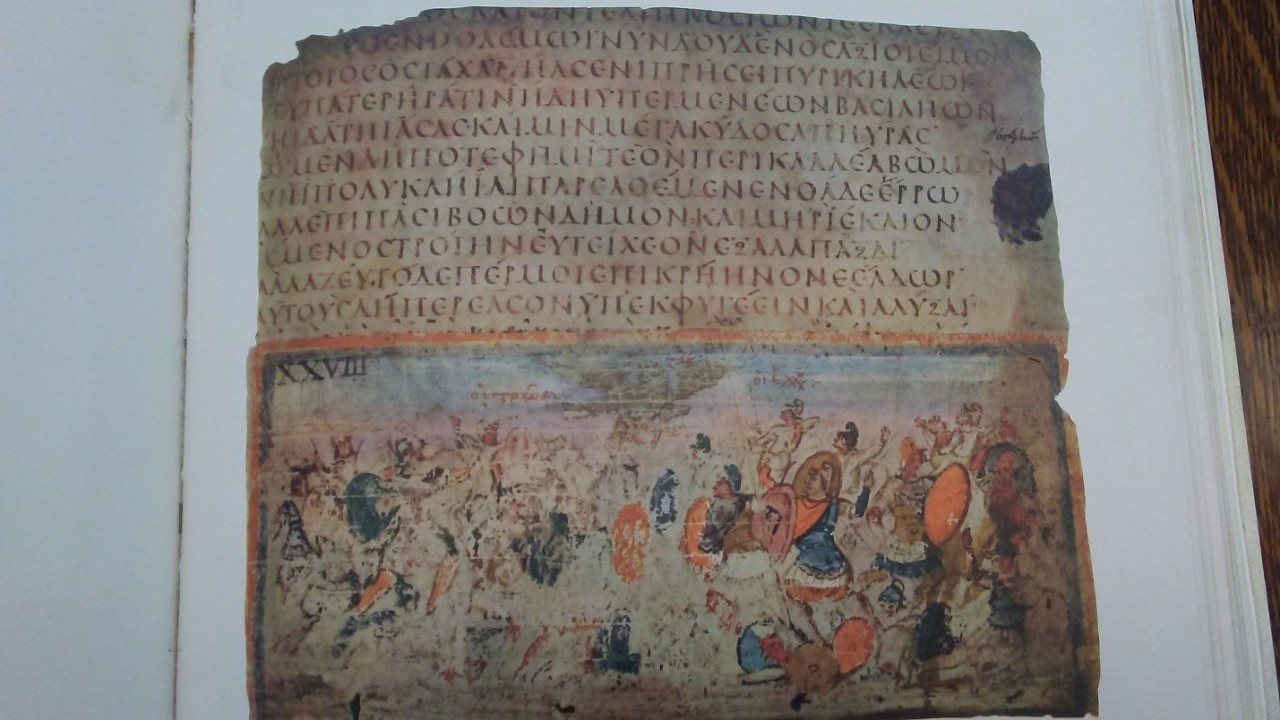 ΠΟΛΕΜΩΙ ΝΥΝ ΔΟΥΔ ΕΝΟΣ ΑΞΙΟΙ ΕΙΜΕΝ
ΤΟΡΟΣ ΟΣ ΤΑΧΑ ΝΗΑΣ ΕΝΙΠΡΗΣΕΙ ΠΥΡΙ ΚΗΛΕΩΙ
ΕΥ ΠΑΤΕΡ Η ΡΑ ΤΙΝ ΗΔΗ ΥΠΕΡΜΕΝΕΩΝ ΒΑΣΙΛΗΩΝ
ΗΙΔ ΑΤΗΙ ΑΣΑΣ ΚΑΙ ΜΙΝ ΜΕΓΑ ΚΥΔΟΣ ΑΠΗΥΡΑΣ
Υ ΜΕΝ ΔΗ ΠΟΤΕ ΦΗΜΙ ΤΕΟΝ ΠΕΡΙΚΑΛΛΕΑ ΒΩΜΟΝ
ΝΗΙ ΠΟΛΥΚΛΗΙΔΙ ΠΑΡΕΛΘΕΜΕΝ ΕΝΘΑΔΕ ΕΡΡΩ
ΑΛΛ ΕΠΙ ΠΑΣΙ ΒΟΩΝ ΔΗΜΟΝ ΚΑΙ ΜΗΡΙ ΕΚΑΙΟΝ
ΕΜΕΝΟΣ ΤΡΟΙΗΝ ΕΥΤΕΙΧΕΟΝ ΕΞΑΛΑΠΑΞΑΙ
ΑΛΛΑ ΖΕΥ ΤΟΔΕ ΠΕΡ ΜΟΙ ΕΠΙΚΡΗΗΝΟΝ ΕΕΛΔΩΡ
ΑΥΤΟΥΣ ΔΗ ΠΕΡ ΕΑΣΟΝ ΥΠΕΚΦΥΓΕΕΙΝ ΚΑΙ ΑΛΥΞΑΙ
XXVIII
οι τρωεσ